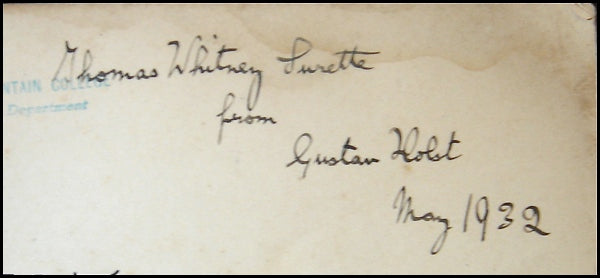 Thomas Whitney Surette
NTAIN COLLEGE
Department
from
Gustav Holst
May 1932